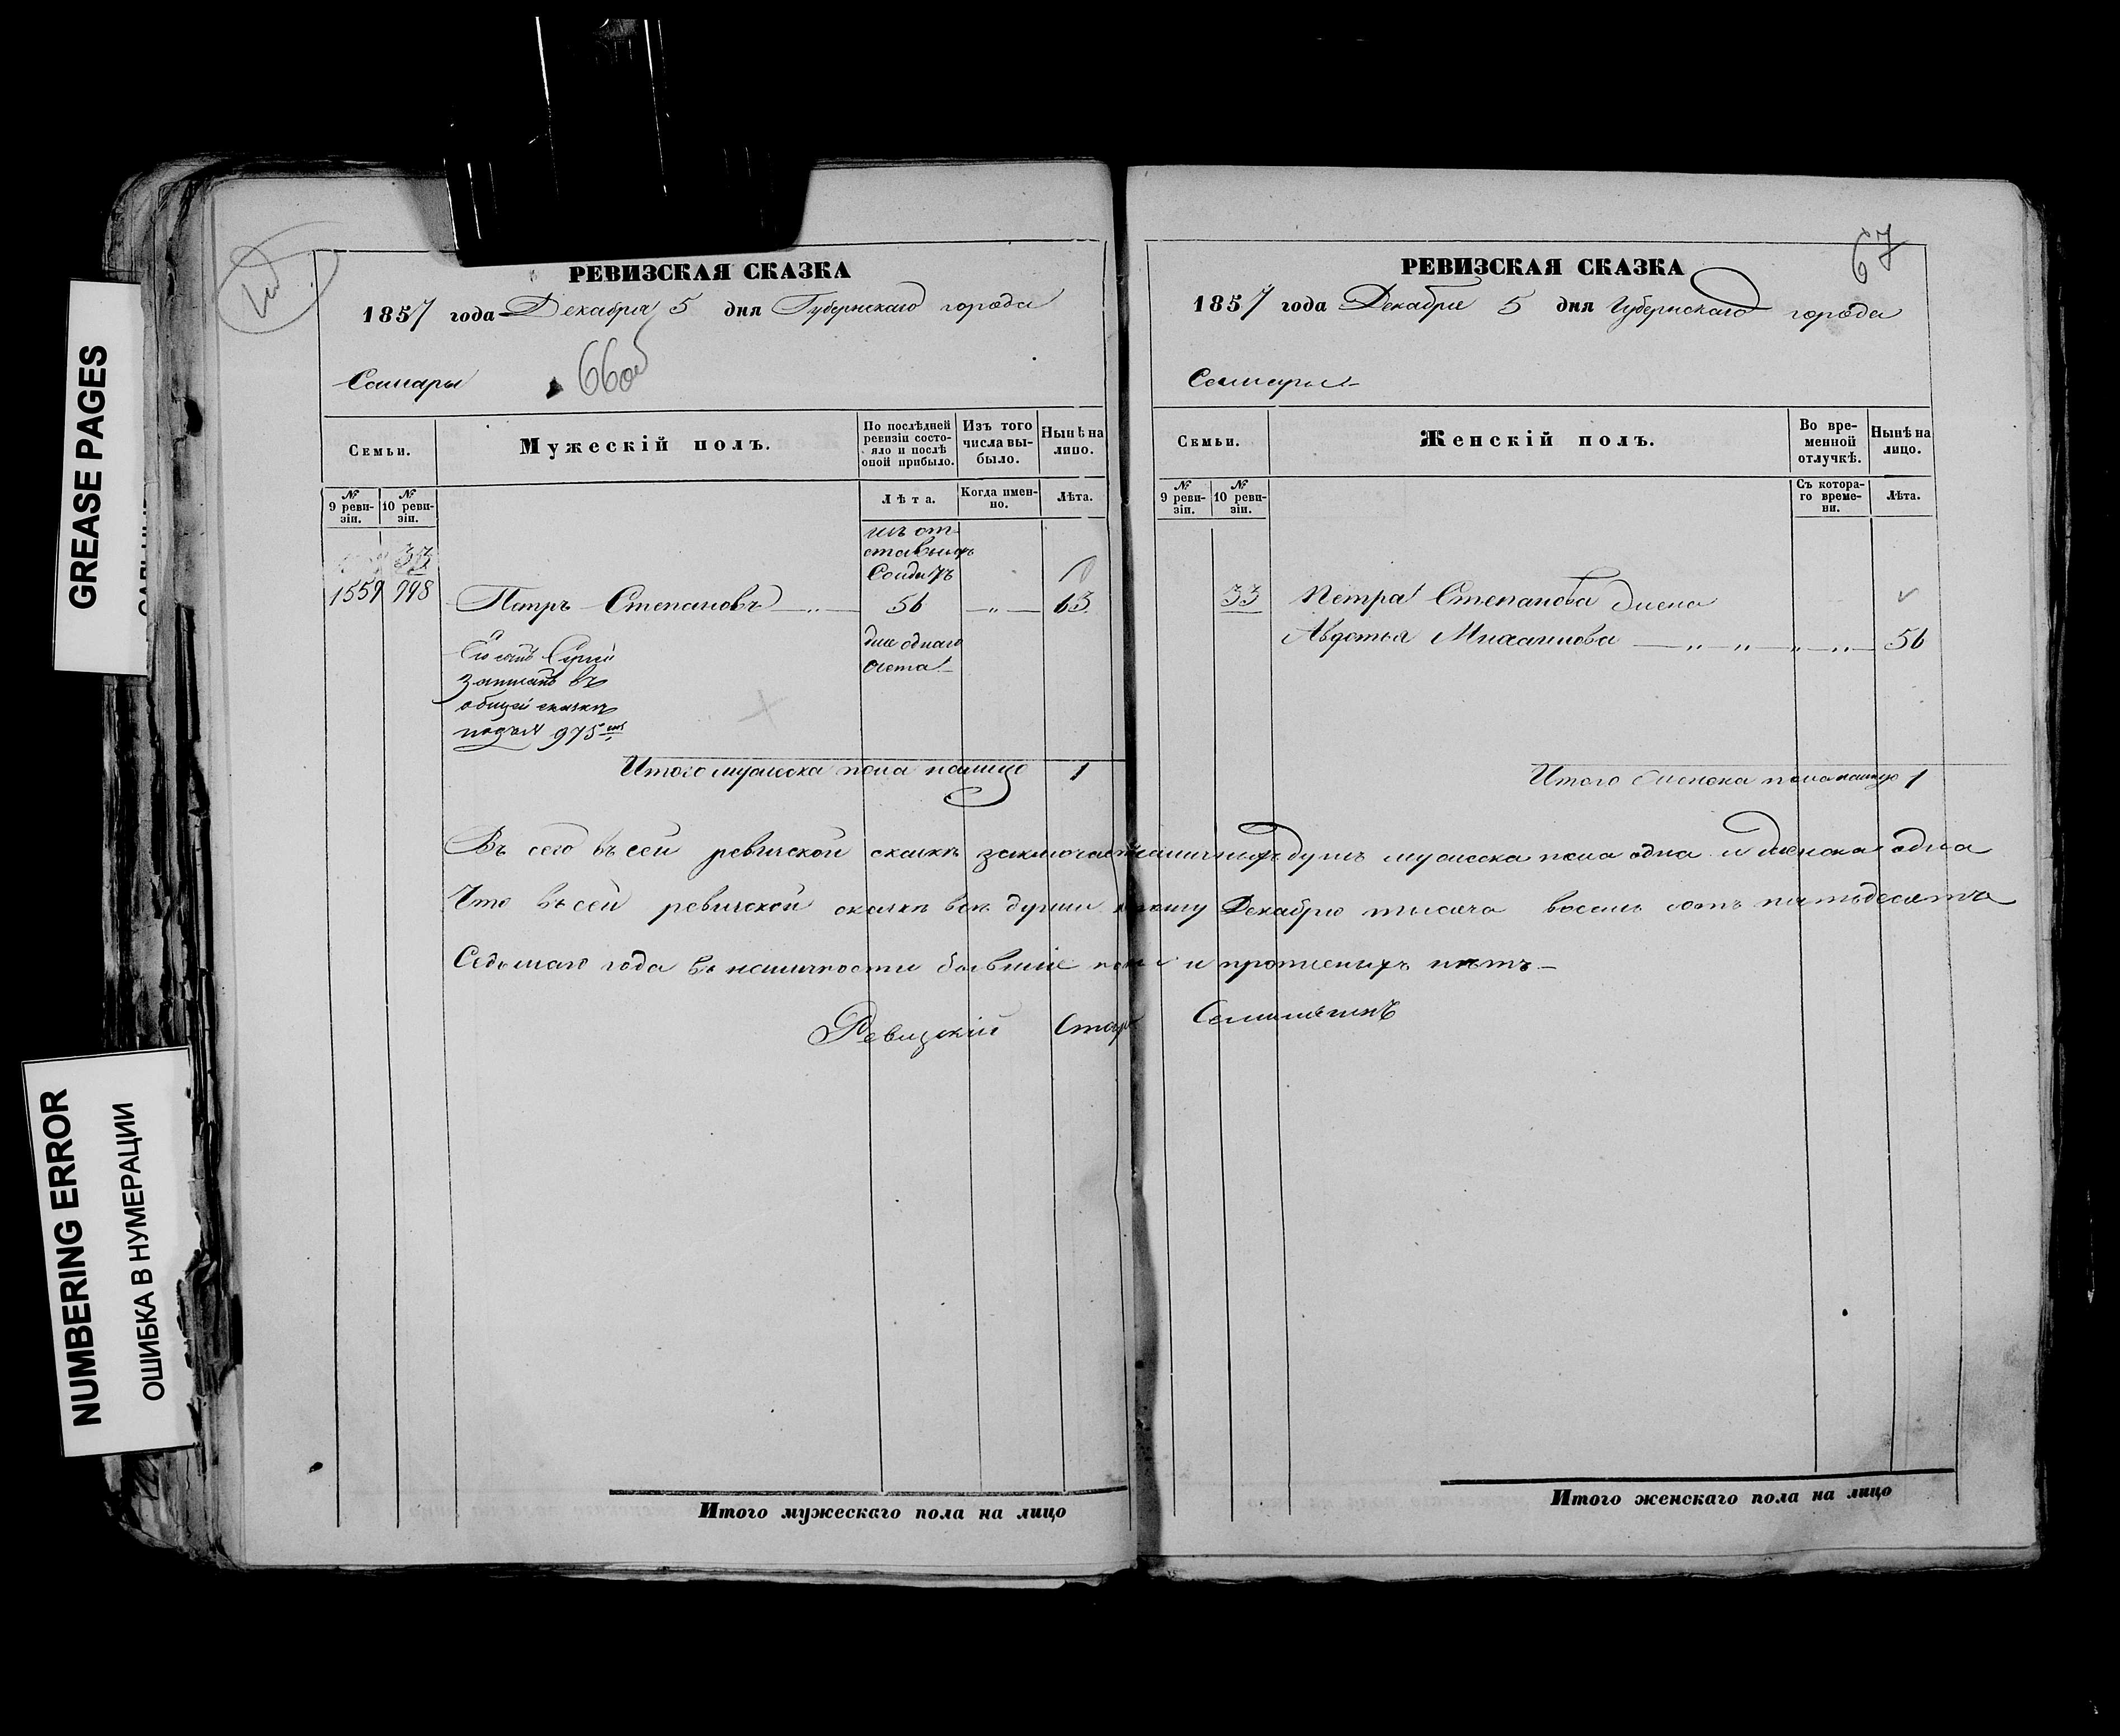 GREASE PAGES
NUMBERING ERROR
ОШИБКА В НУМЕРАЦИИ
РЕВИЗСКАЯ СКАЗКА
1857 года Декабря 5 дня Губернскаго города
Самары
66об
Семьи.
Мужескій полъ.
По послѣдней ревизіи состояло и послѣ оной прибыло.
Изъ того числа выбыло.
Нынѣ на лицо.
№ 9 ревизіи.
№ 10 ревизіи.
Лѣта.
Когда именно.
Лѣта.
изъ от-
ставныхъ
Солдатъ
33
1559 998 Петръ Степановъ 56 — „ — 63
для однаго
счета
Его сынъ
записанъ въ
общей сказкѣ
подъ № 975
Итого мужеска пола налицо 1
67
РЕВИЗСКАЯ СКАЗКА
1857 года Декабря 5 дня Губернскаго города
Самары
Семьи.
Женскій полъ.
Во временной отлучкѣ.
Нынѣ на лицо.
№ 9 ревизіи.
№ 10 ревизіи.
Съ котораго времени.
Лѣта.
33 Петра Степанова жена
Авдотья Михайлова — „ — „ — „ — „ — 56
Итого женска пола налицо 1
Въ сей ревизской сказкѣ заключается наличныхъ душъ мужеска пола одна и женска одна
Что въ сей ревизской сказкѣ всѣ души Декабрю тысяча восемь сотъ пятьдесятъ
Седьмаго года въ наличности бывшіе и прописныхъ нѣтъ —
Ревизскій
Итого мужескаго пола на лицо
Итого женскаго пола на лицо